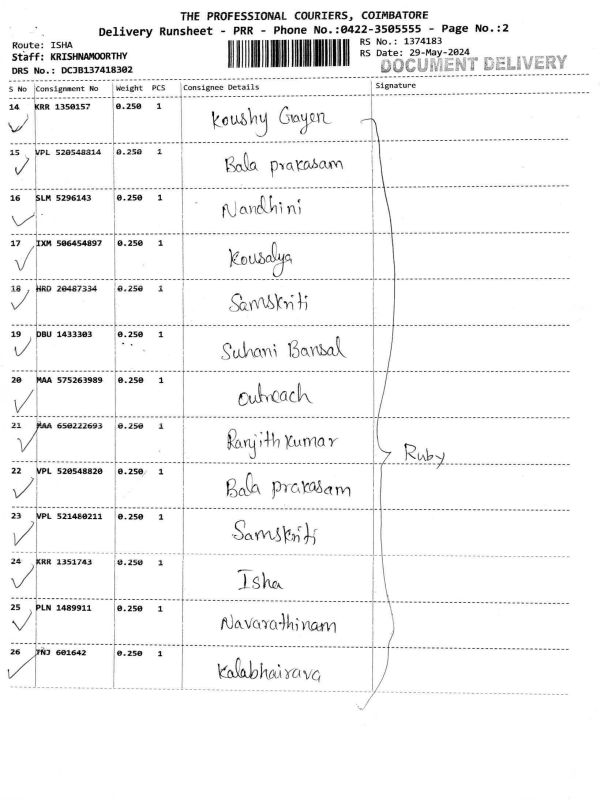 THE PROFESSIONAL COURIERS, COIMBATORE
Delivery Runsheet - PRR - Phone No.:0422-3505555 - Page No.:2
Route: ISHA
Staff: KRISHNAMOORTHY
DRS No.: DCJB137418302
RS No.: 1374183
RS Date: 29-May-2024
DOCUMENT DELIVERY
S No Consignment No Weight PCS Consignee Details Signature
14 KRR 1350157 0.250 1 Koushy Gayen
15 VPL 520548814 0.250 1 Bala prakasam
16 SLM 5296143 0.250 1 Nandhini
17 IXM 506454897 0.250 1 Kousalya
18 HRD 20487334 0.250 1 Samskriti
19 DBU 1433303 0.250 1 Suhani Bansal
20 MAA 575263989 0.250 1 Outreach
21 MAA 650222693 0.250 1 Ranjith Kumar
Ruby
22 VPL 520548820 0.250 1 Bala prakasam
23 VPL 521480211 0.250 1 Samskriti
24 KRR 1351743 0.250 1 Isha
25 PLN 1489911 0.250 1 Navarathinam
26 TNJ 601642 0.250 1 Kalabhairava